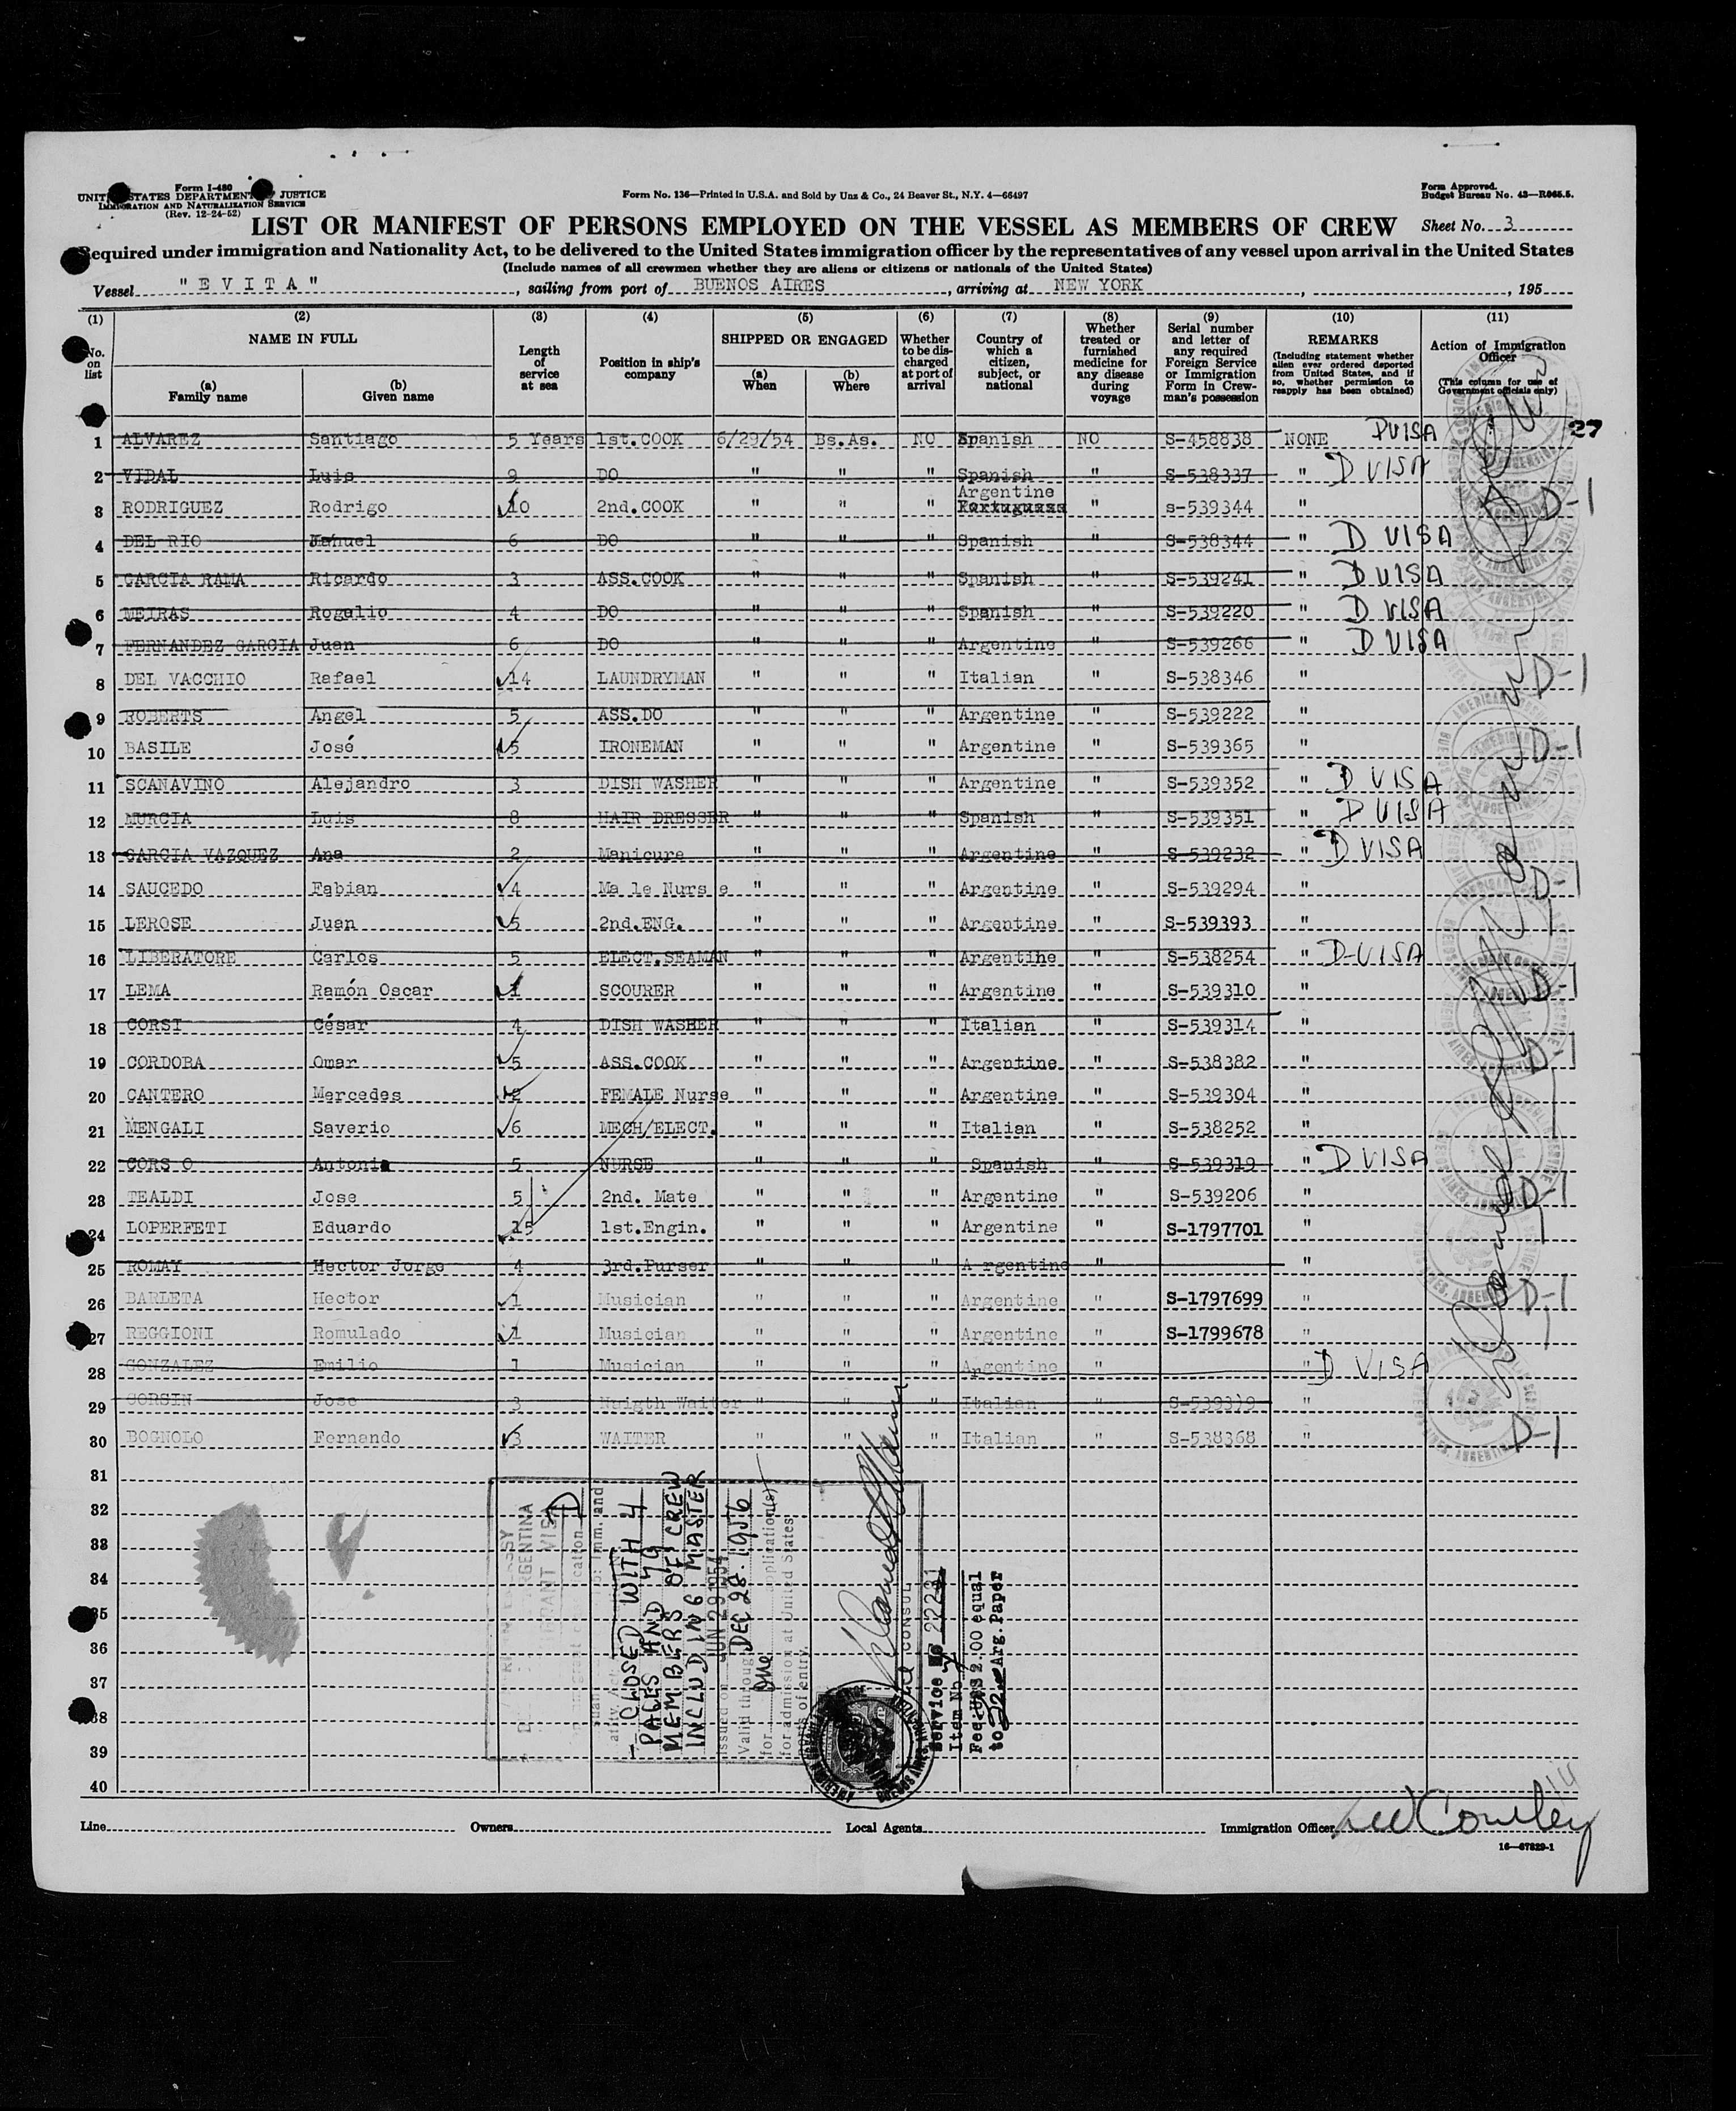 Form I-480
UNITED STATES DEPARTMENT OF JUSTICE
IMMIGRATION AND NATURALIZATION SERVICE
(Rev. 12-24-52)
Form No. 136—Printed in U.S.A. and Sold by Unz & Co., 24 Beaver St., N.Y. 4—66497
Form Approved.
Budget Bureau No. 43—R065.5.
LIST OR MANIFEST OF PERSONS EMPLOYED ON THE VESSEL AS MEMBERS OF CREW
Sheet No. 3
Required under immigration and Nationality Act, to be delivered to the United States immigration officer by the representatives of any vessel upon arrival in the United States
(Include names of all crewmen whether they are aliens or citizens or nationals of the United States)
Vessel "E V I T A", sailing from port of BUENOS AIRES, arriving at NEW YORK, , 195
(1) (2) (3) (4) (5) (6) (7) (8) (9) (10) (11)
No. on list
NAME IN FULL
(a) Family name
(b) Given name
Length of service at sea
Position in ship's company
SHIPPED OR ENGAGED
(a) When
(b) Where
Whether to be discharged at port of arrival
Country of which a citizen, subject, or national
Whether treated or furnished medicine for any disease during voyage
Serial number and letter of any required Foreign Service or Immigration Form in Crewman's possession
REMARKS
(Including statement whether alien ever ordered deported from United States, and if so, whether permission to reapply has been obtained)
Action of Immigration Officer
(This column for use of Government officials only)
1 ALVAREZ Santiago 5 Years 1st.COOK 6/29/54 Bs.As. NO Spanish NO S-458838 NONE D VISA 27
2 VIDAL Luis 9 DO " " " Spanish " S-538337 " D VISA
3 RODRIGUEZ Rodrigo 10 2nd.COOK " " " Argentine " s-539344 " D-1
4 DEL RIO Manuel 6 DO " " " Spanish " S-538344 " D VISA
5 GARCIA RAMA Ricardo 3 ASS.COOK " " " Spanish " S-539241 " D VISA
6 MEIRAS Rogelio 4 DO " " " Spanish " S-539220 " D VISA
7 FERNANDEZ GARCIA Juan 6 DO " " " Argentine " S-539266 " D VISA
8 DEL VACCHIO Rafael 14 LAUNDRYMAN " " " Italian " S-538346 " D-1
9 ROBERTS Angel 5 ASS.DO " " " Argentine " S-539222 "
10 BASILE José 5 IRONEMAN " " " Argentine " S-539365 " D-1
11 SCANAVINO Alejandro 3 DISH WASHER " " " Argentine " S-539352 " D VISA
12 MURCIA Luis 8 HAIR DRESSER " " " Spanish " S-539351 " D VISA
13 GARCIA VAZQUEZ Ana 2 Manicure " " " Argentine " S-539232 " D VISA
14 SAUCEDO Fabian 4 Ma le Nurs e " " " Argentine " S-539294 " D-1
15 LEROSE Juan 5 2nd.ENG. " " " Argentine " S-539393 "
16 LIBERATORE Carlos 5 ELECT.SEAMAN " " " Argentine " S-538254 " D-VISA
17 LEMA Ramón Oscar 1 SCOURER " " " Argentine " S-539310 " D-1
18 CORSI César 4 DISH WASHER " " " Italian " S-539314 "
19 CORDOBA Omar 5 ASS.COOK " " " Argentine " S-538382 " D-1
20 CANTERO Mercedes 2 FEMALE Nurse " " " Argentine " S-539304 "
21 MENGALI Saverio 6 MECH/ELECT. " " " Italian " S-538252 "
22 CORS O Antonia 5 NURSE " " " Spanish " S-539319 " D VISA
23 TEALDI Jose 5 2nd. Mate " " " Argentine " S-539206 " D-1
24 LOPERFETI Eduardo 15 1st.Engin. " " " Argentine " S-1797701 "
25 ROMAY Hector Jorge 4 3rd.Purser " " " A rgentine " "
26 BARLETA Hector 1 Musician " " " Argentine " S-1797699 " D-1
27 REGGIONI Romulado 1 Musician " " " Argentine " S-1799678 "
28 GONZALEZ Emilio 1 Musician " " " Argentine " " D VISA
29 CORSIN Jose 3 Nuigth Waiter " " " Italian " S-539319 "
30 BOGNOLO Fernando 3 WAITER " " " Italian " S-538368 " D-1
31
32
33
34
35
36
37
38
39
40
D
- CLOSED WITH 4
PAGES AND 79
MEMBERS OF CREW
INCLUDING MASTER
Issued on JUN 29 1954
Valid through DEC 28. 1956
for one application(s)
for admission at United States
ports of entry.
CONSUL
Service No 22231
Item No. 7
Fee US$ 2.00 equal
to Arg. Paper
Line
Owners
Local Agents
Immigration Officer
16—67829-1